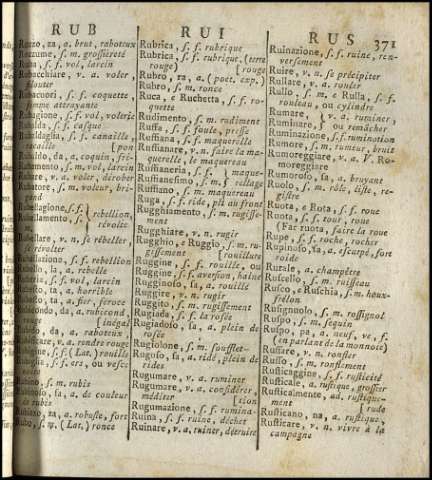 RUB RUI RUS 371
Rozzo, za, a. brut, raboteux
Rozzume, s. m. grossièreté
Ruba, s. f. vol, larcin
Rubacchiare, v. a. voler,
filouter
Rubacuori, s. f. coquette,
femme attrayante
Rubagione, s. f. vol, volerie
s. f. casque
Rubaldaglia, s. f. canaille,
racaille [pon
da, a. coquin, fri-
s. m. vol, larcin
Rubare, v. a. voler, dérober
Rubatore, s. m. voleur, bri-
gand
Rubellagione, s. f. }
Rubellamento, s. } rébellion,
m. } révolte
Rubellare, v. n. se rébeller
révolter
Rubellazione, s. f. rébellion
Rubello, la, a. rebelle
s. f. vol, larcin
ta, a. horrible
ta, a. fier, féroce
da, a. rubicond,
rouge [inégal
da, a. raboteux
v. a. rendre rouge
Rubigine, s. f. (Lat.) rouille
s. f. ers, ou vesce
Rubino, s. m. rubis
sa, a. de couleur
de rubis
za, a. robuste, fort
Rubo, s. m. (Lat.) ronce
Rubrica, s. f. rubrique
Rubrica, s. f. rubrique, (terre
rouge) [rouge
Rubro, ra, a. (poet. exp.)
Rubro, s. m. ronce
Ruca, e Ruchetta, s. f. ro-
quette
Rudimento, s. m. rudiment
Ruffa, s. f. foule, presse
Ruffiana, s. f. maquerelle
Ruffianare, v. n. faire la ma-
querelle, le maquereau
Ruffianeria, s. f. } maque-
Ruffianesimo, s. m. } rellage
Ruffiano, s. m. maquereau
Ruga, s. f. ride, pli au front
Rugghiamento, s. m. rugisse-
ment
Rugghiare, v. n. rugir
Rugghio, e Ruggio, s. m. ru-
gissement [rouillure
Ruggine, s. f. rouille, ou
Ruggine, s. f. aversion, haine
Rugginoso, sa, a. rouillé
Ruggire, v. n. rugir
Ruggito, s. m. rugissement
Rugiada, s. f. la rosée
Rugiadoso, sa, a. plein de
rosée
Rugiolone, s. m. soufflet
Rugoso, sa, a. ridé, plein de
rides
Rugumare, v. a. ruminer
Rugumare, v. a. considérer,
méditer [tion
Rugumazione, s. f. rumina-
Ruina, s. f. ruine, déchet
Ruinare, v. a. ruiner, détruire
Ruinazione, s. f. ruine, ren-
versement
Ruire, v. n. se précipiter
Rullare, v. a. rouler
Rullo, s. m. e Rulla, s. f.
rouleau, ou cylindre
Rumare, } v. a. ruminer,
Ruminare, } ou remâcher
Ruminazione, s. f. rumination
Rumore, s. m. rumeur, bruit
Rumoreggiare, v. a. V. Ro-
moreggiare
Rumoroso, sa, a. bruyant
Ruolo, s. m. rôle, liste, re-
gistre
Ruota, e Rota, s. f. roue
Ruota, s. f. tour, roue
(Far ruota, faire la roue
Rupe, s. f. roche, rocher
Rupinoso, sa, a. escarpé, fort
roide
Rurale, a. champêtre
Ruscello, s. m. ruisseau
Rusco, e Ruschia, s. m. houx-
frêlon
Rusignuolo, s. m. rossignol
Ruspo, s. m. sequin
Ruspo, pa, a. neuf, ve, f.
(en parlant de la monnoie)
Russare, v. n. ronfler
Russo, s. m. ronflement
Rusticaggine, s. f. rusticité
Rusticale, a. rustique, grossier
Rusticalmente, ad. rustique-
ment [rude
Rusticano, na, a. rustique,
Rusticare, v. n. vivre à la
campagne